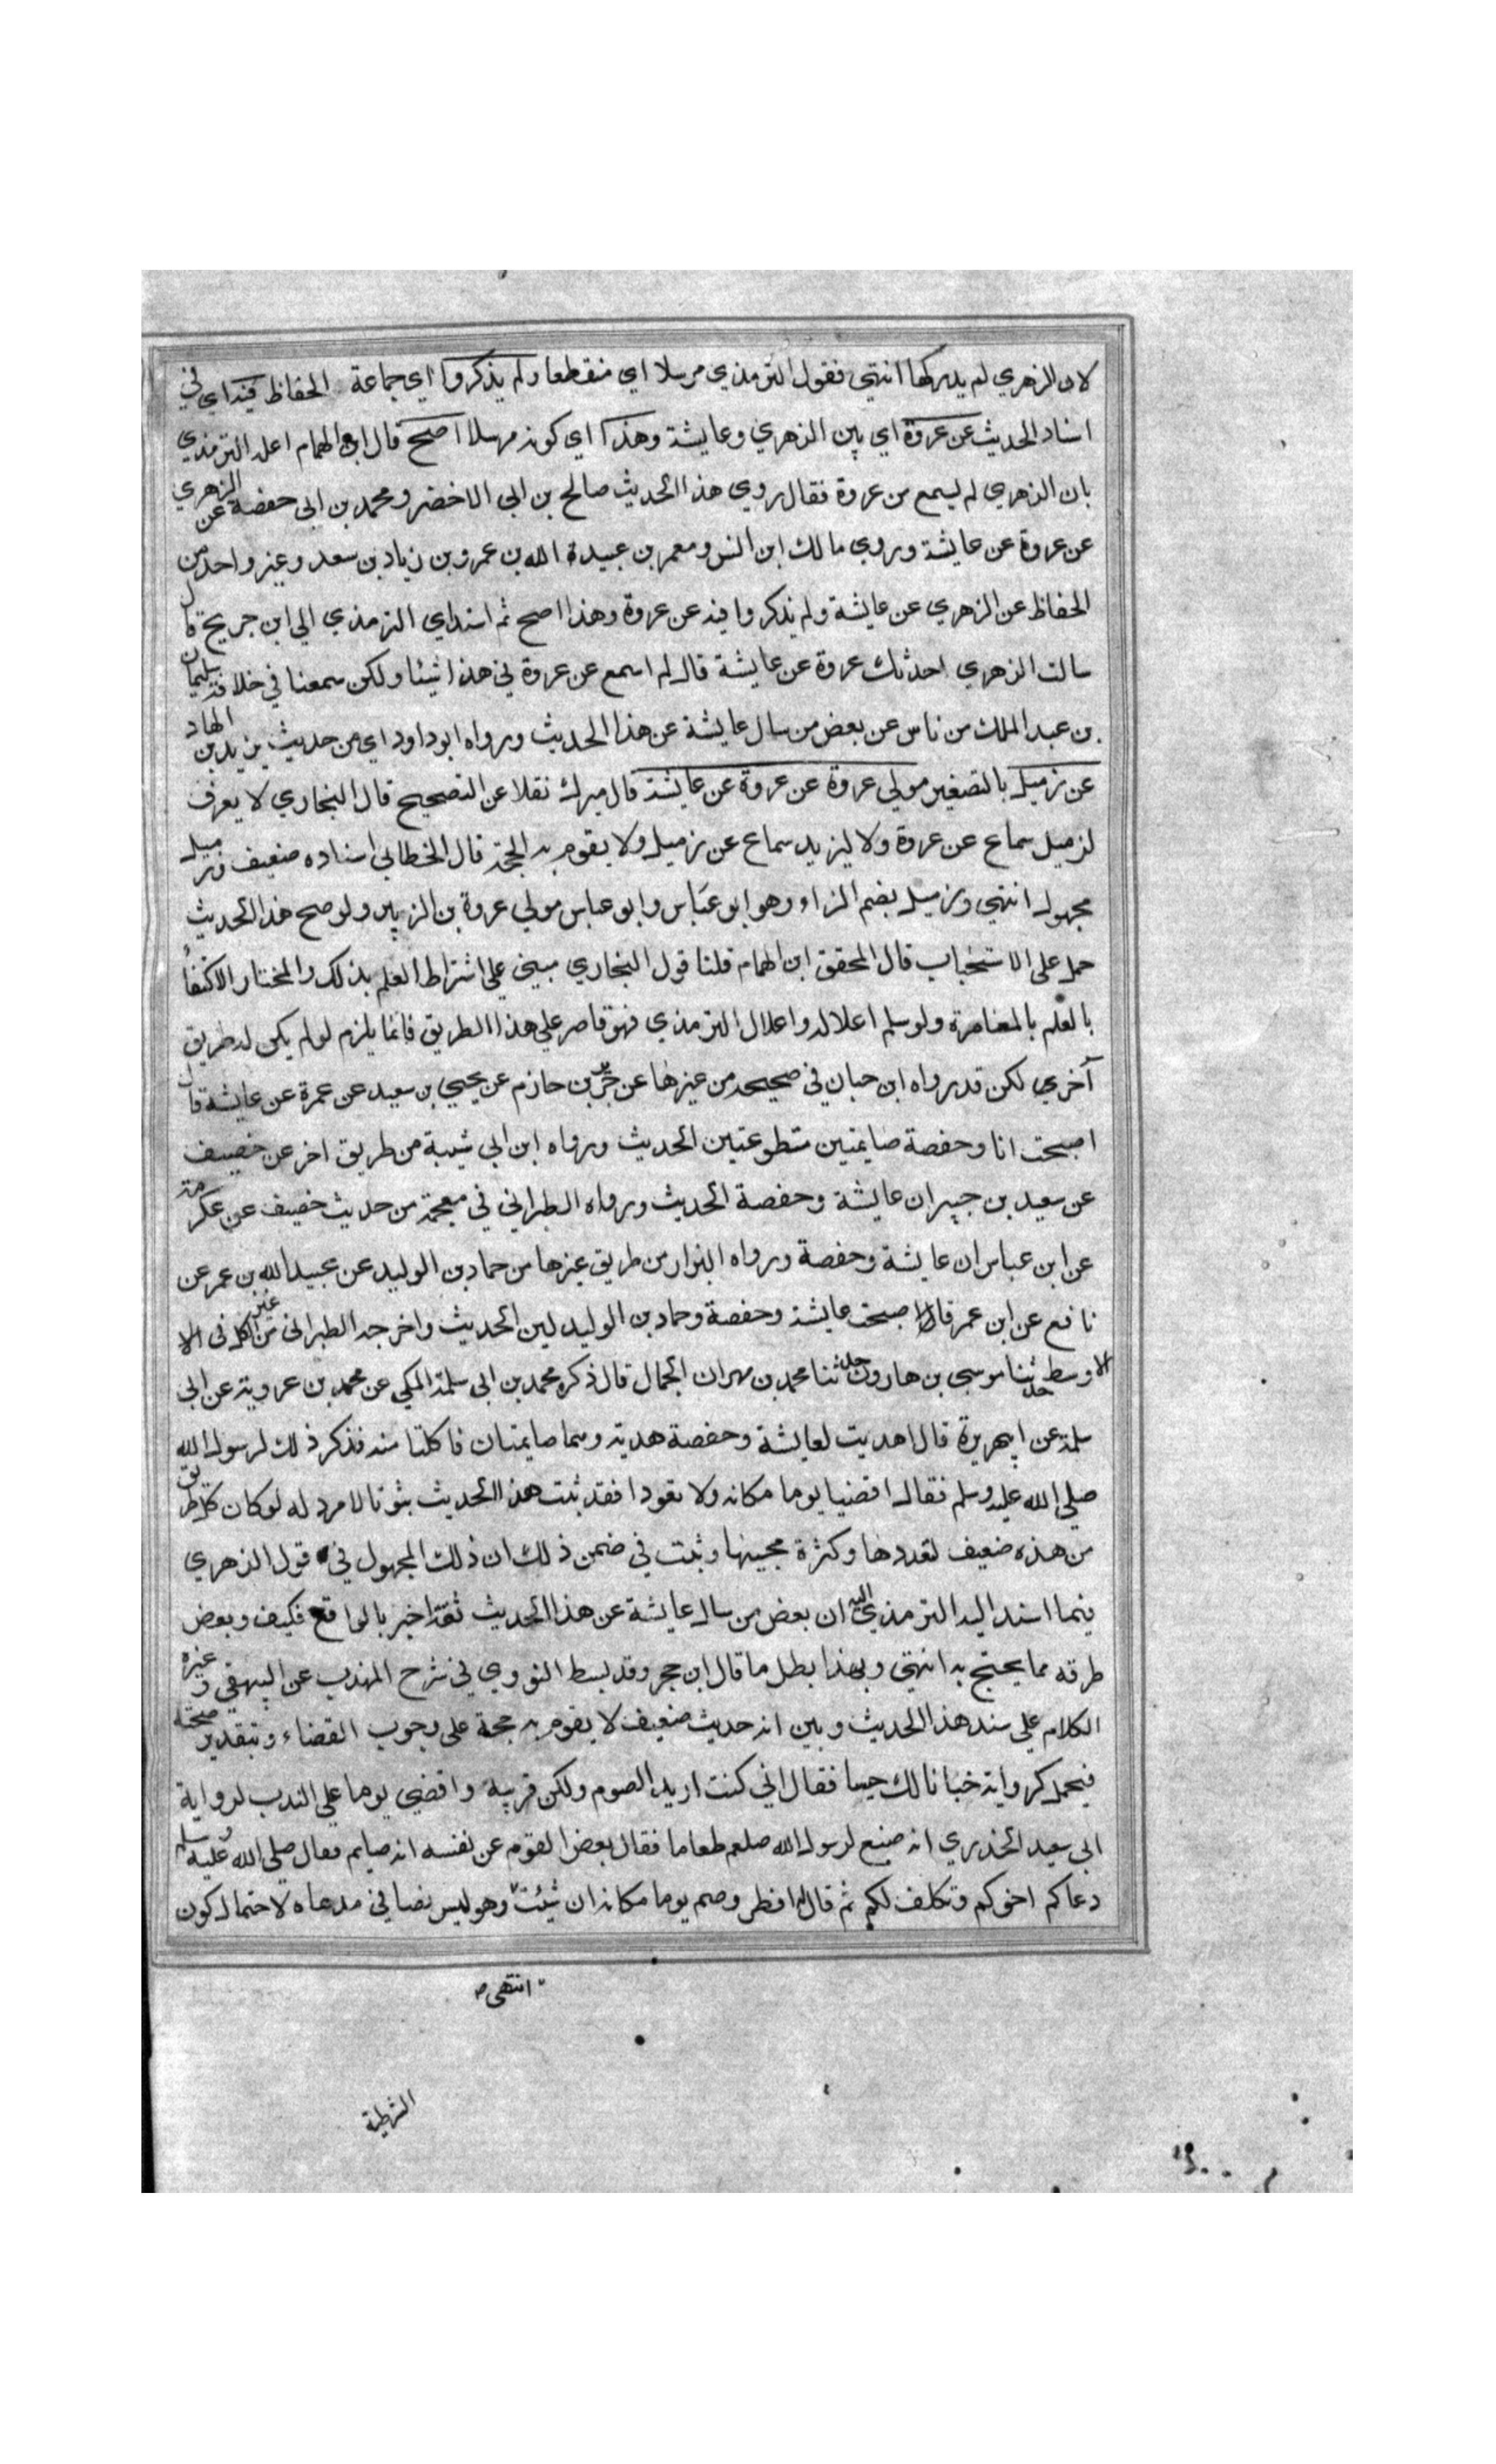 لان الزهري لم يدركها انتهي فقول الترمذي مرسلا اي منقطعا ولم يذكروا اي جماعة الحفاظ فيه اي في
اسناد الحديث عن عروة اي بين الزهري وعايشة وهذا اي كونه مرسلا اصح قال ابن الهمام اعله الترمذي
بان الزهري لم يسمع من عروة فقال روي هذا الحديث صالح بن ابي الاخضر ومحمد بن ابي حفصة عن الزهري
عن عروة عن عايشة وروي مالك ابن انس ومعمر بن عبيدة الله بن عمرو بن زياد بن سعد وغير واحد من
الحفاظ عن الزهري عن عايشة ولم يذكروا فيه عن عروة وهذا اصح ثم اسنداي الترمذي الي ابن جريج قال
سالت الزهري احدثك عروة عن عايشة قال لم اسمع عن عروة في هذا شيئا ولكن سمعنا في خلافة سليمان
بن عبد الملك من ناس عن بعض من سال عايشة عن هذا الحديث ورواه ابو داود اي من حديث يزيد بن الهاد
عن زميل بالتصغير مولي عروة عن عروة عن عايشة قال ميرك نقلا عن التصحيح قال البخاري لا يعرف
لزميل سماع عن عروة ولا ليزيد سماع عن زميل ولا يقوم به الحجة قال الخطابي اسناده ضعيف وزميل
مجهول انتهي وزميل بضم الزاء وهو ابو عباس وابو عباس مولي عروة بن الزبير ولو صح هذا الحديث
حمل علي الاستحباب قال المحقق ابن الهمام قلنا قول البخاري مبني علي اشتراط العلم بذلك والمختار الاكتفأ
بالعلم بالمعاصرة ولو سلم اعلاله واعلال الترمذي فهو قاصر علي هذا الطريق فانما يلزم لو لم يكن له طريق
آخري لكن قد رواه ابن حبان في صحيحه من غيرها عن جرير بن حازم عن يحيي بن سعيد عن عمرة عن عايشة قال
اصبحت انا وحفصة صايمتين متطوعتين الحديث ورواه ابن ابي شيبة من طريق اخر عن خصيف
عن سعيد بن جبير ان عايشة وحفصة الحديث ورواه الطبراني في معجمه من حديث خصيف عن عكرمة
عن ابن عباس ان عايشة وحفصة ورواه البزار من طريق غيرها من حماد بن الوليد عن عبيد الله بن عمر عن
نافع عن ابن عمر قال اصبحت عايشة وحفصة وحماد بن الوليد لين الحديث واخرجه الطبراني من غير الكل في الا
الاوسط حدثنا موسي بن هارون حدثنا محمد بن مهران الجمال قال ذكره محمد بن ابي سلمة المكي عن محمد بن عمرويه عن ابي
سلمة عن ابي هريرة قال اهديت لعايشة وحفصة هدية وهما صايمتان فاكلتا منه فذكر ذلك لرسول الله
صلي الله عليه وسلم فقال اقضيا يوما مكانه ولا تعودا فقد ثبت هذا الحديث ثبوتا لا مرد له لو كان كل طريق
من هذه ضعيف لتعددها وكثرة مجيئها وثبت في ضمن ذلك ان ذلك المجهول في قول الزهري
فيما اسند اليه الترمذي اليه ان بعض من سال عايشة عن هذا الحديث ثقة اخبر بالواقع فكيف وبعض
طرقه مما يحتج به انتهي وبهذا بطل ما قال ابن حجر وقد بسط النووي في شرح المهذب عن البيهقي وغيره
الكلام علي سند هذا الحديث وبين انه حديث ضعيف لا يقوم به حجة علي وجوب القضاء وبتقدير صحته
فيحمل كرواية خبانا لك حيسا فقال اني كنت اريد الصوم ولكن قربيه واقضي يوما علي الندب لرواية
ابي سعيد الخدري انه صنع لرسول الله صلعم طعاما فقال بعض القوم عن نفسه انه صايم فقال صلي الله عليه وسلم
دعاكم اخوكم وتكلف لكم ثم قال له افطر وصم يوما مكانه ان شئت وهو ليس نصا في مدعاه لاحتمال كون
انتهي
الشرطية